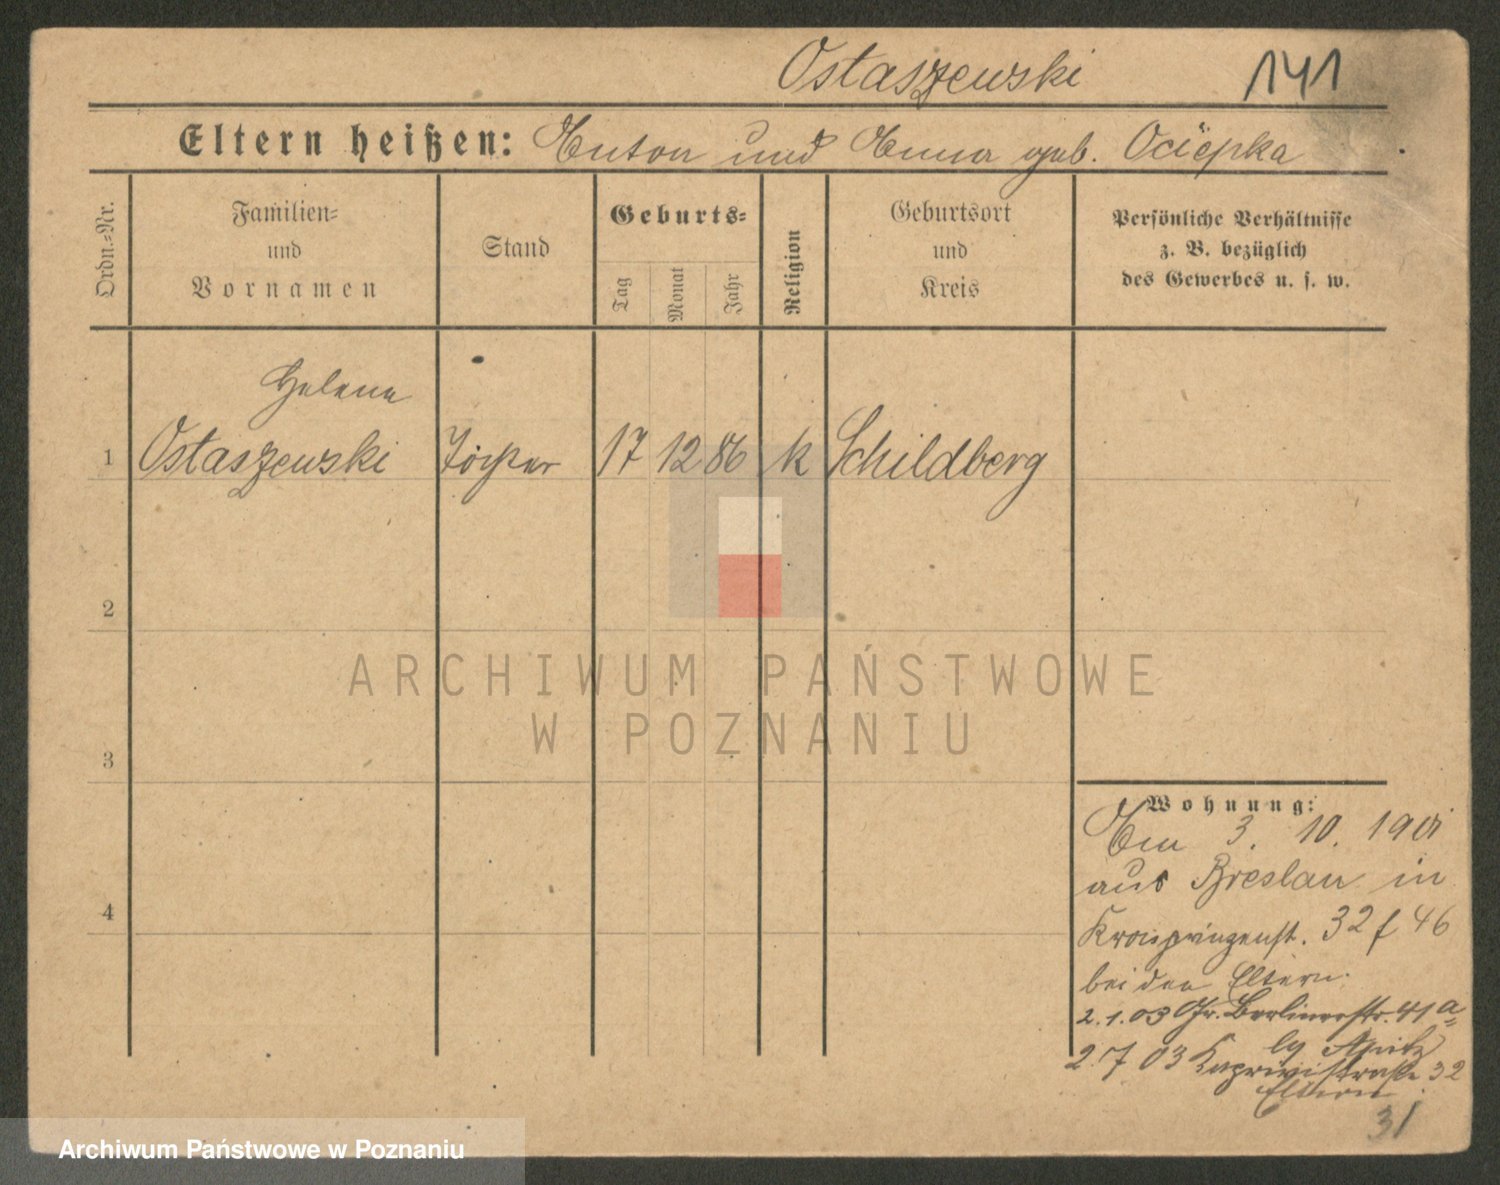 Ostaszewski 141
Eltern heißen: Anton und Anna geb. Ociepka
Ordn.-Nr.
Familien-
und
Vornamen
Stand
Geburts-
Tag
Monat
Jahr
Religion
Geburtsort
und
Kreis
Persönliche Verhältnisse
z. B. bezüglich
des Gewerbes u. s. w.
Helene
1 Ostaszewski 17 12 86 k Schildberg
2
3
4
Wohnung:
Am 3. 10. 1901
aus Breslau in
Kronprinzenst. 32 f 46
bei den Eltern.
2.1.03 Gr. Berlinerstr. 41a
2.7 03 Kaprivistraße 32
Eltern
31
ARCHIWUM PAŃSTWOWE
W POZNANIU
Archiwum Państwowe w Poznaniu